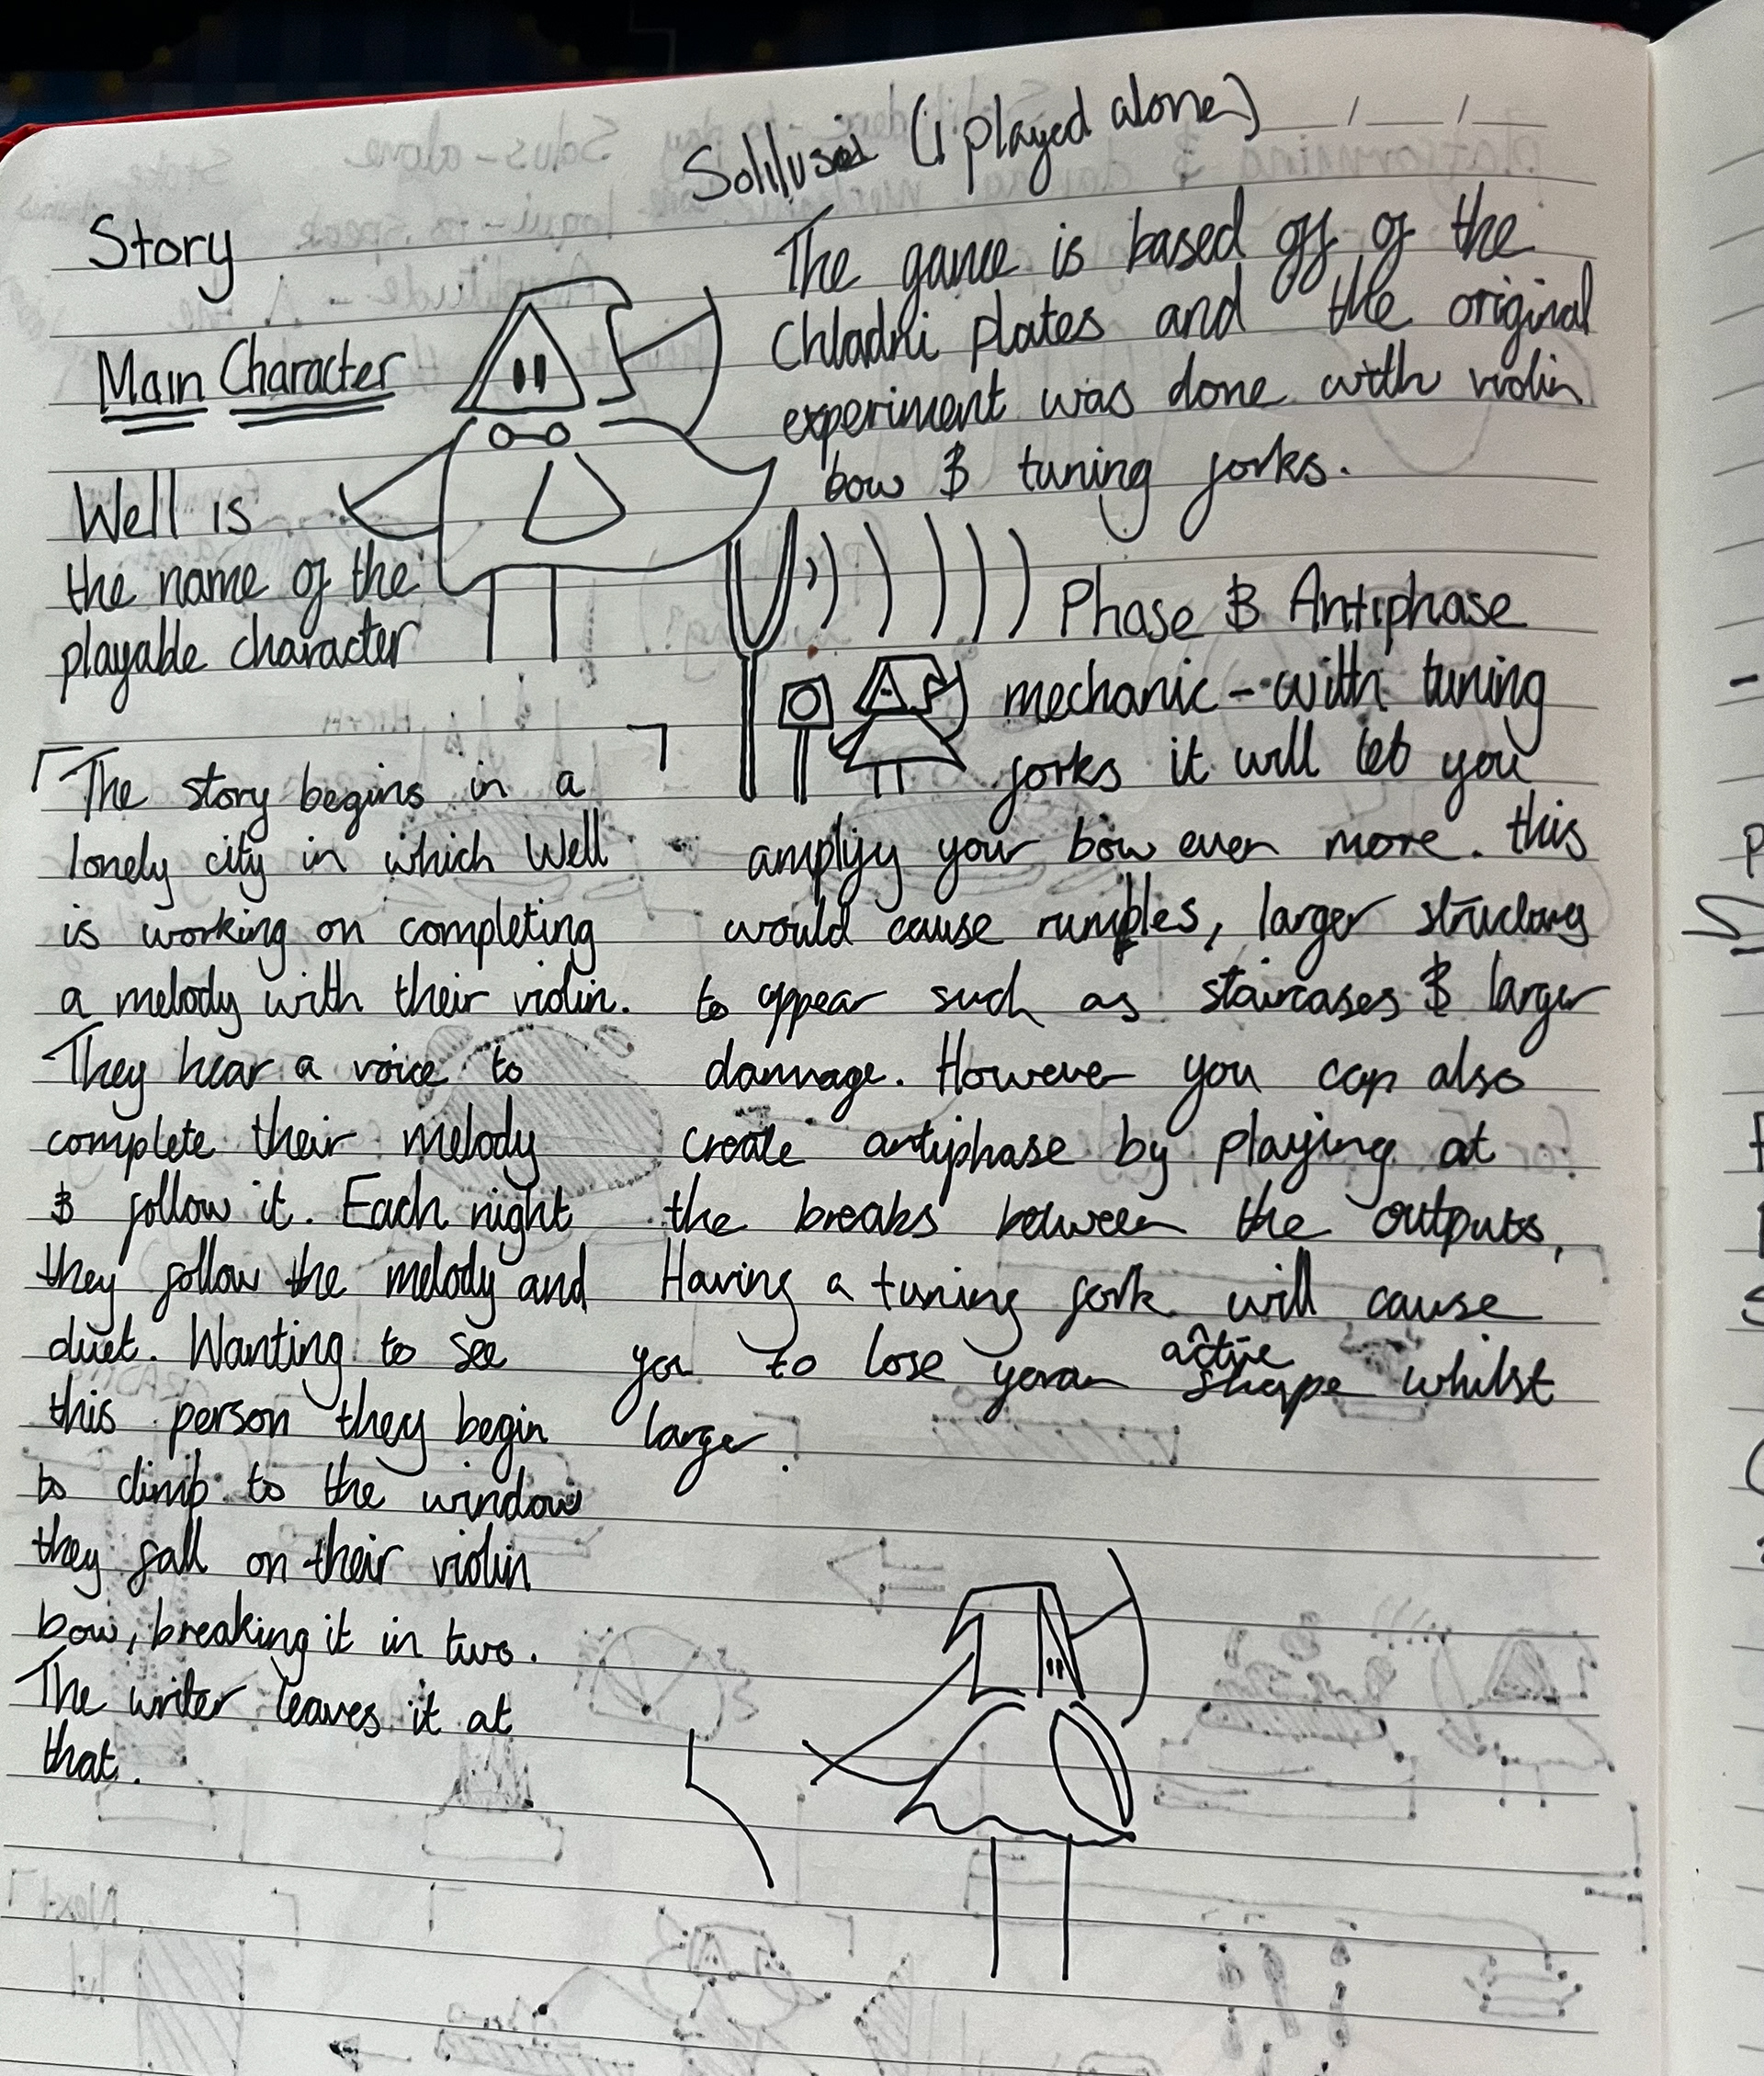 (i played alone)
Story
Main Character
Well is
the name of the
playable character
The story begins in a
lonely city in which Well
is working on completing
a melody with their violin.
They hear a voice to
complete their melody
& follow it. Each night
they follow the melody and
duet. Wanting to see
this person they begin
to climb to the window
they fall on their violin
bow, breaking it in two.
The writer leaves it at
that.
The game is based off of the
Chladni plates and the original
experiment was done with violin
bow & tuning forks.
Phase & Antiphase
mechanic - with tuning
forks it will let you
amplify your bow even more. this
would cause rumbles, larger structures
to appear such as staircases & larger
damage. However you can also
create antiphase by playing at
the breaks between the outputs,
Having a tuning fork will cause
you to lose active shape whilst
larger.